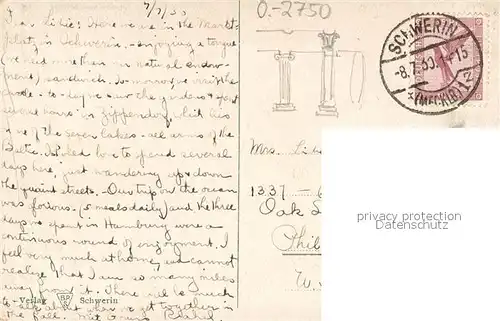 7/7/30
Dear Libbie: Here we us in the Markt
platz in Schwerin - enjoying a tongue
(we need more than our natural endow-
ment) sandwich. Tomorrow, we visit the
some hours in Zippendorf, which lies
on one of the seven lakes - all arms of the
Baltic. I'd love to spend several
days here, just wandering up & down
the quaint streets. Our trip on the ocean
was glorious. (5 meals daily) and the three
days we spent in Hamburg were a
continuous round of enjoyment. I
feel very much at home, and cannot
realize that I am so many miles
away from it. There will be much
to talk about when we get together in
the fall.
Verlag Schwerin
0.-2750
SCHWERIN
-8. 30. 14-15
*(MECKLB)1z
Mrs.
1337 -
Oak
Phil
W.
privacy protection
Datenschutz